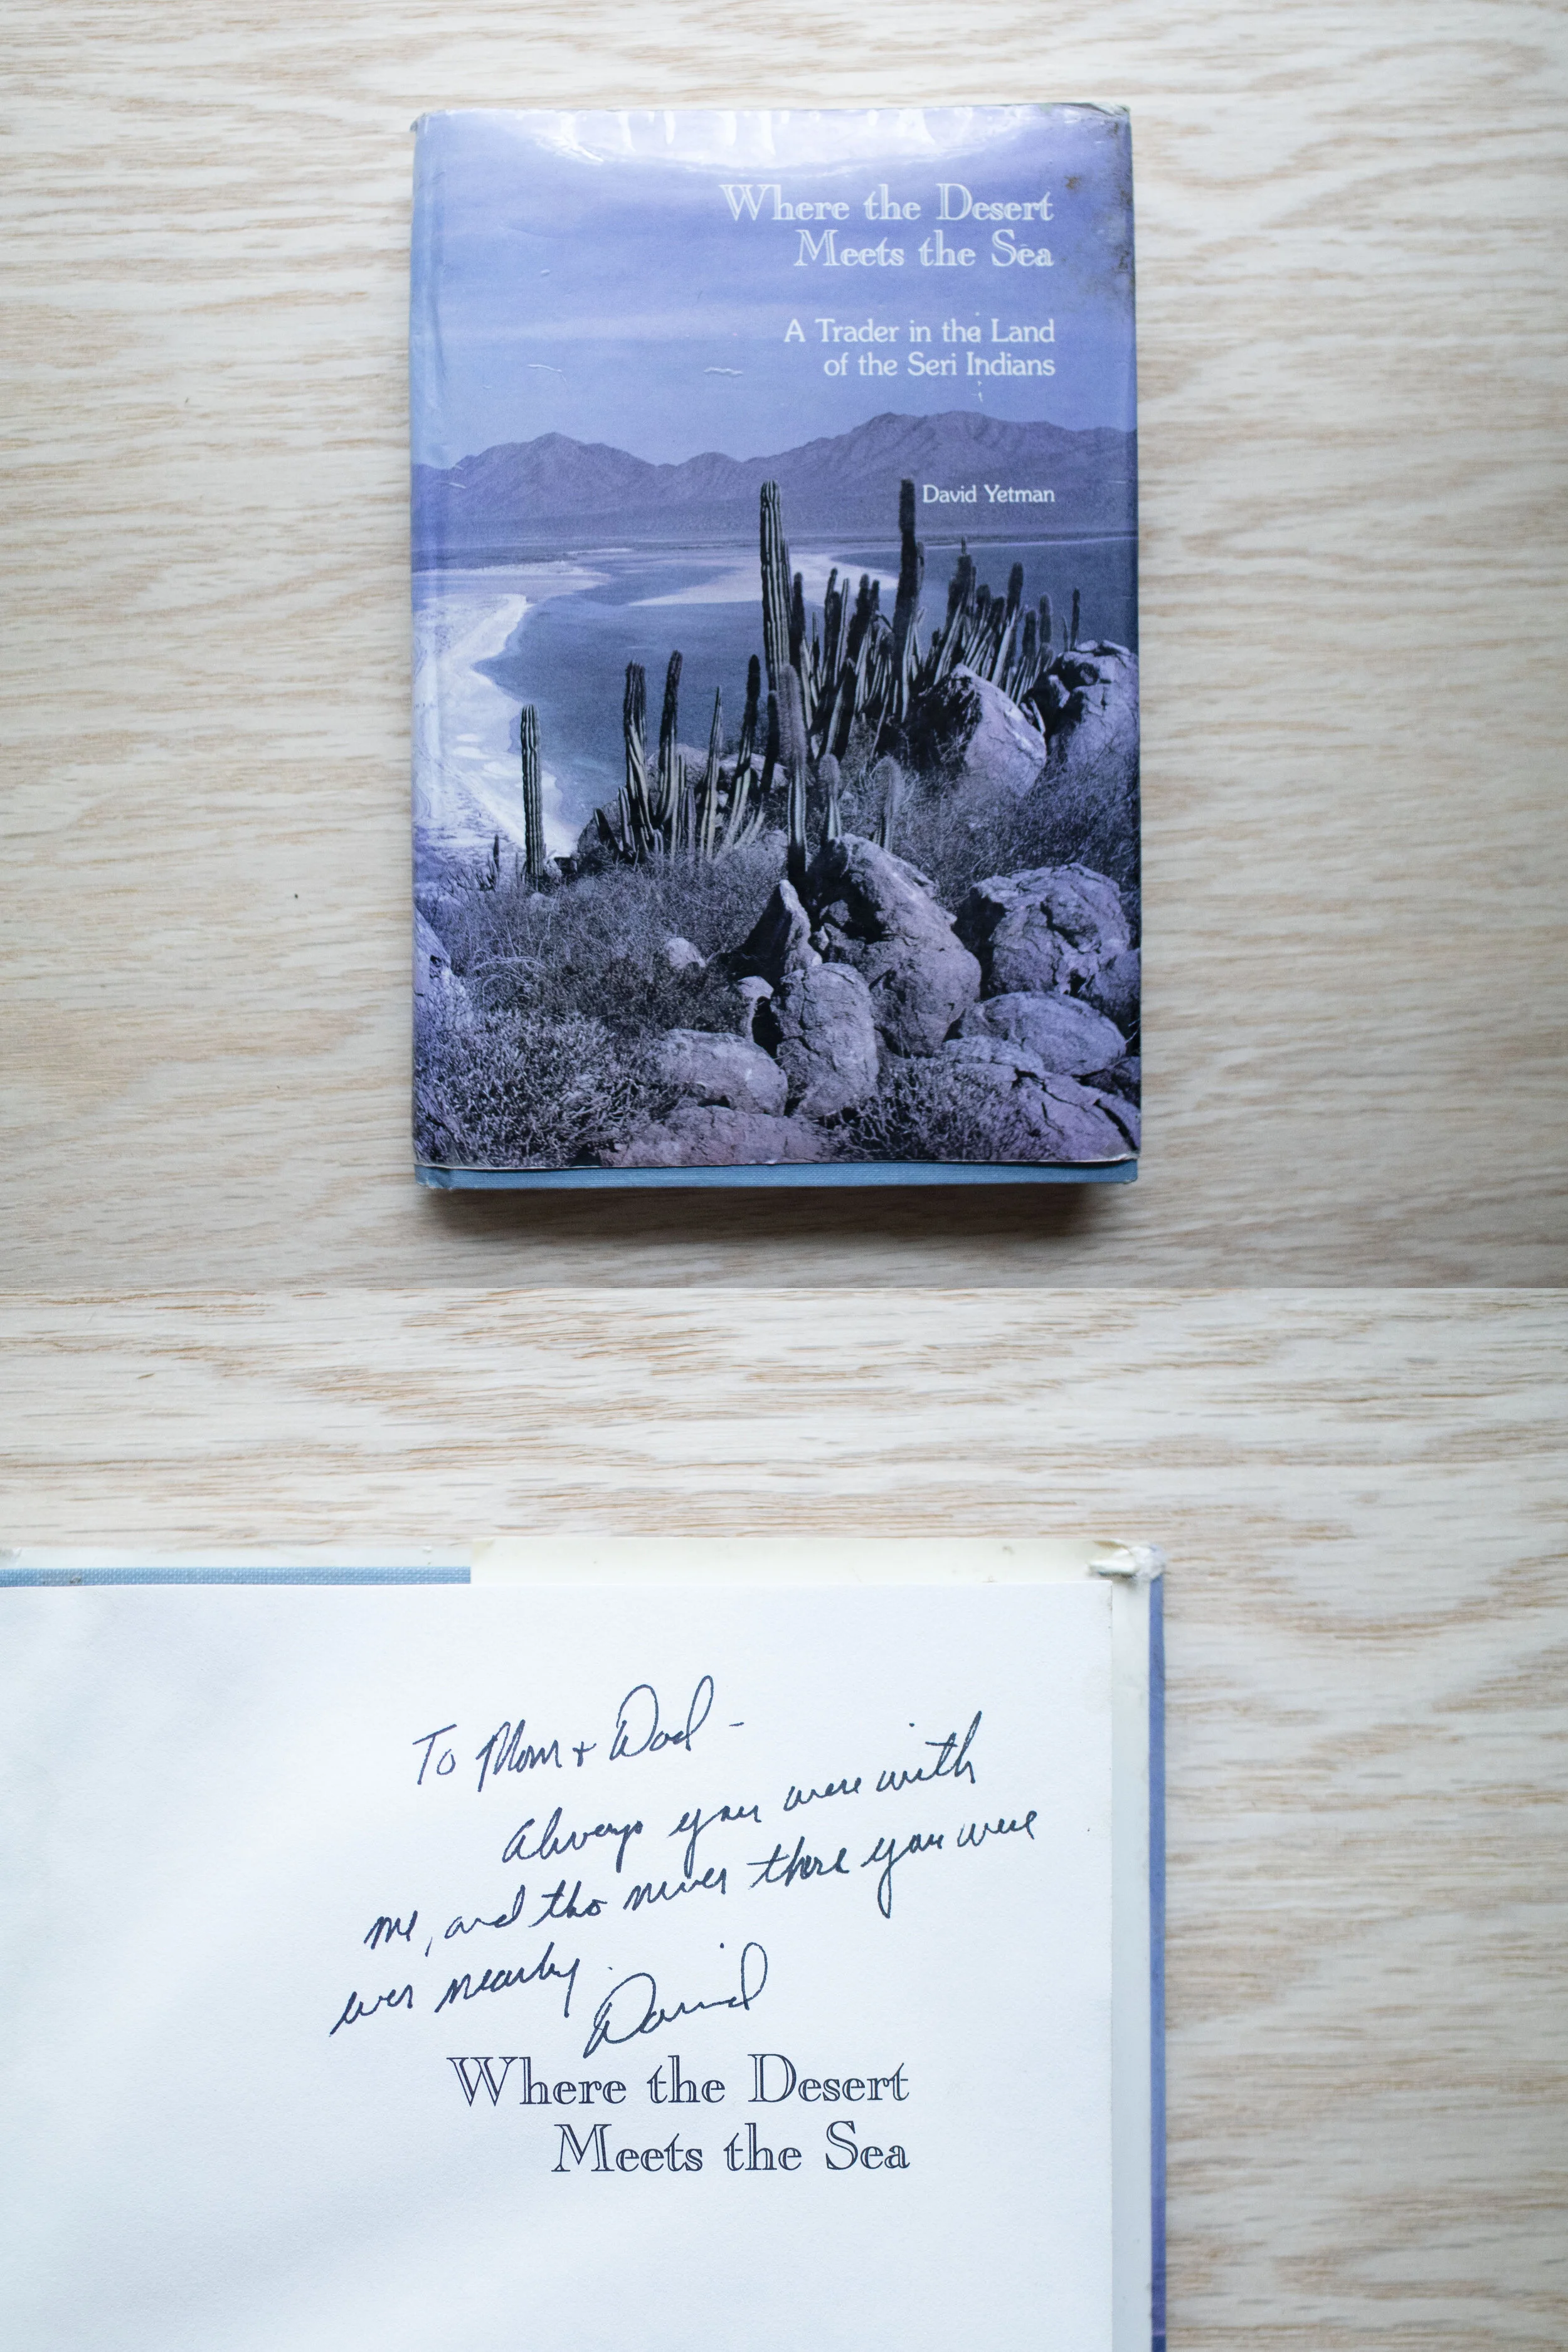 Where the Desert
Meets the Sea
A Trader in the Land
of the Seri Indians
David Yetman
To Mom + Dad -
Always you were with
me, and tho never there you were
ever nearby.
David
Where the Desert
Meets the Sea